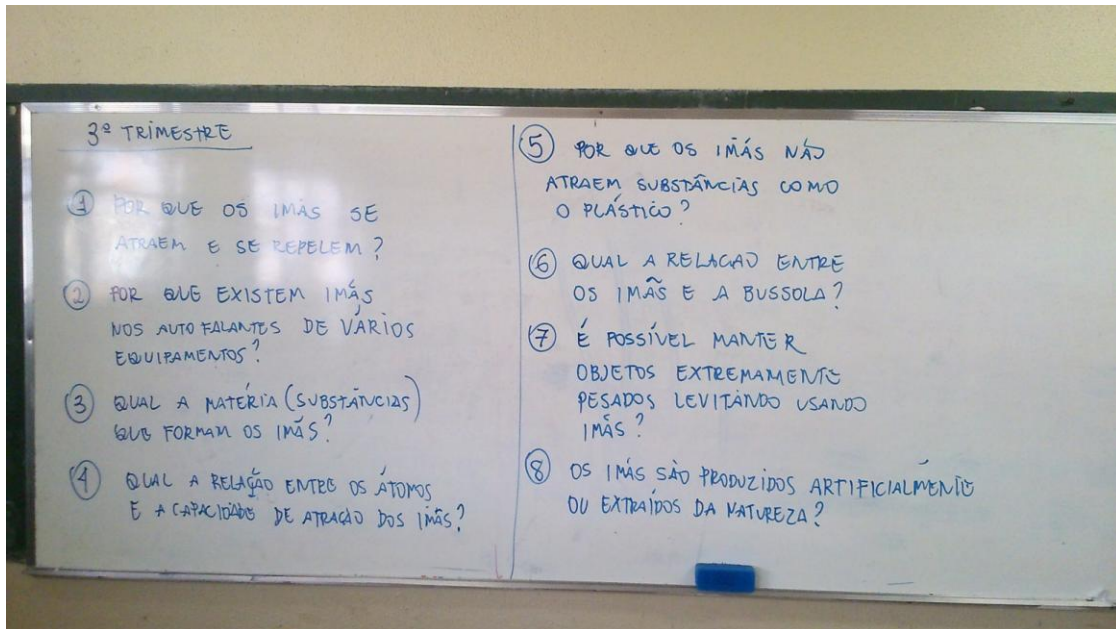 3º TRIMESTRE
1 POR QUE OS IMÃS SE
ATRAEM E SE REPELEM?
2 POR QUE EXISTEM IMÃS
NOS AUTO FALANTES DE VÁRIOS
EQUIPAMENTOS?
3 QUAL A MATÉRIA (SUBSTÂNCIAS)
QUE FORMAM OS IMÃS?
4 QUAL A RELAÇÃO ENTRE OS ÁTOMOS
E A CAPACIDADE DE ATRAÇÃO DOS IMÃS?
5 POR QUE OS IMÃS NÃO
ATRAEM SUBSTÂNCIAS COMO
O PLÁSTICO?
6 QUAL A RELAÇÃO ENTRE
OS IMÃS E A BUSSOLA?
7 É POSSÍVEL MANTER
OBJETOS EXTREMAMENTE
PESADOS LEVITANDO USANDO
IMÃS?
8 OS IMÃS SÃO PRODUZIDOS ARTIFICIALMENTE
OU EXTRAÍDOS DA NATUREZA?